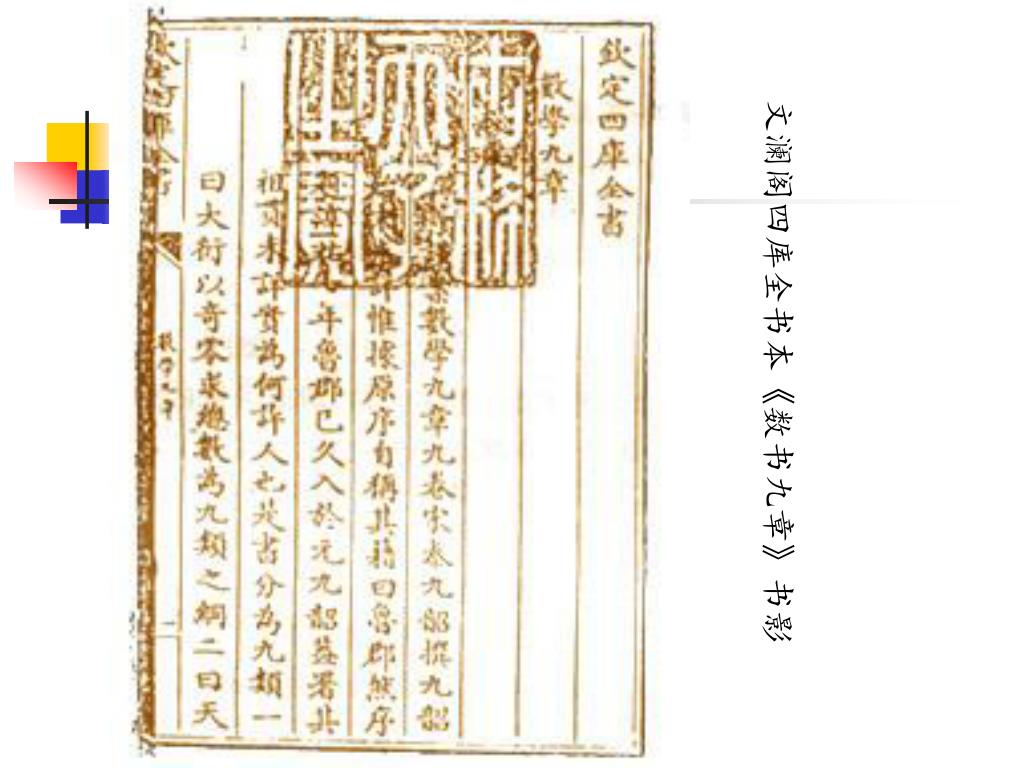 文澜阁四库全书本《数书九章》书影
欽定四庫全書
數學九章
案數學九章九卷宋秦九韶撰九韶
詳惟據原序自稱其籍曰魯郡然序
年魯郡已久入於元九韶蓋署其
祖貫未詳實為何許人也是書分為九類一
曰大衍以奇零求總數為九類之綱二曰天
數學九章